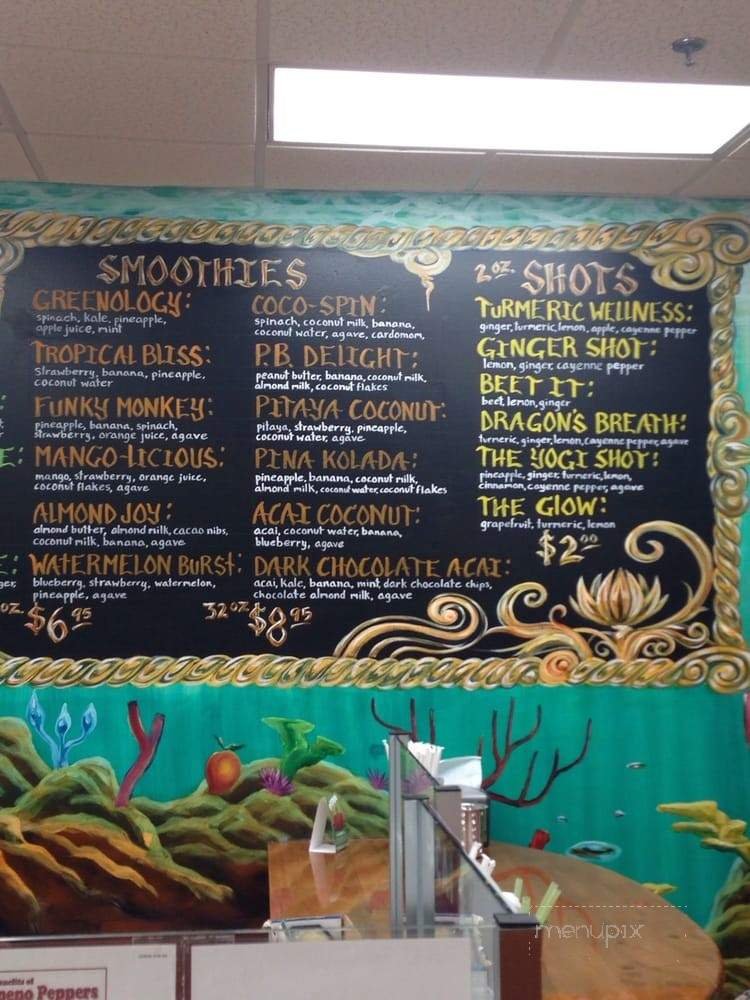 SMOOTHIES
GREENOLOGY:
spinach, kale, pineapple,
apple juice, mint
TROPICAL BLISS:
Strawberry, banana, pineapple,
coconut water
FUNKY MONKEY:
pineapple, banana, spinach,
strawberry, orange juice, agave
MANGO-LICIOUS:
mango, strawberry, orange juice,
coconut flakes, agave
ALMOND JOY:
almond butter, almond milk, cacao nibs,
coconut milk, banana, agave
WATERMELON BURSt:
blueberry, strawberry, watermelon,
pineapple, agave
oz $6.95
COCO-SPIN:
spinach, coconut milk, banana,
coconut water, agave, cardomom,
P.B. DELIGHT:
peanut butter, banana, coconut milk,
almond milk, coconut flakes
PITAYA COCONUT:
pitaya, strawberry, pineapple,
coconut water, agave
PINA KOLADA:
pineapple, banana, coconut milk,
almond milk, coconut water, coconut flakes
ACAI COCONUT:
acai, coconut water, banana,
blueberry, agave
DARK CHOCOLATE ACAI:
acai, kale, banana, mint, dark chocolate chips,
chocolate almond milk, agave
32 oz $8.95
2 oz. SHOTS
TURMERIC WELLNESS:
ginger, turmeric, lemon, apple, cayenne pepper
GINGER SHOT:
lemon, ginger, cayenne pepper
BEET IT:
beet, lemon, ginger
DRAGON'S BREATH:
turmeric, ginger, lemon, cayenne pepper, agave
THE YOGI SHOT:
pineapple, ginger, turmeric, lemon,
cinnamon, cayenne pepper, agave
THE GLOW:
grapefruit, turmeric, lemon
$2.00
menupix
Peppers